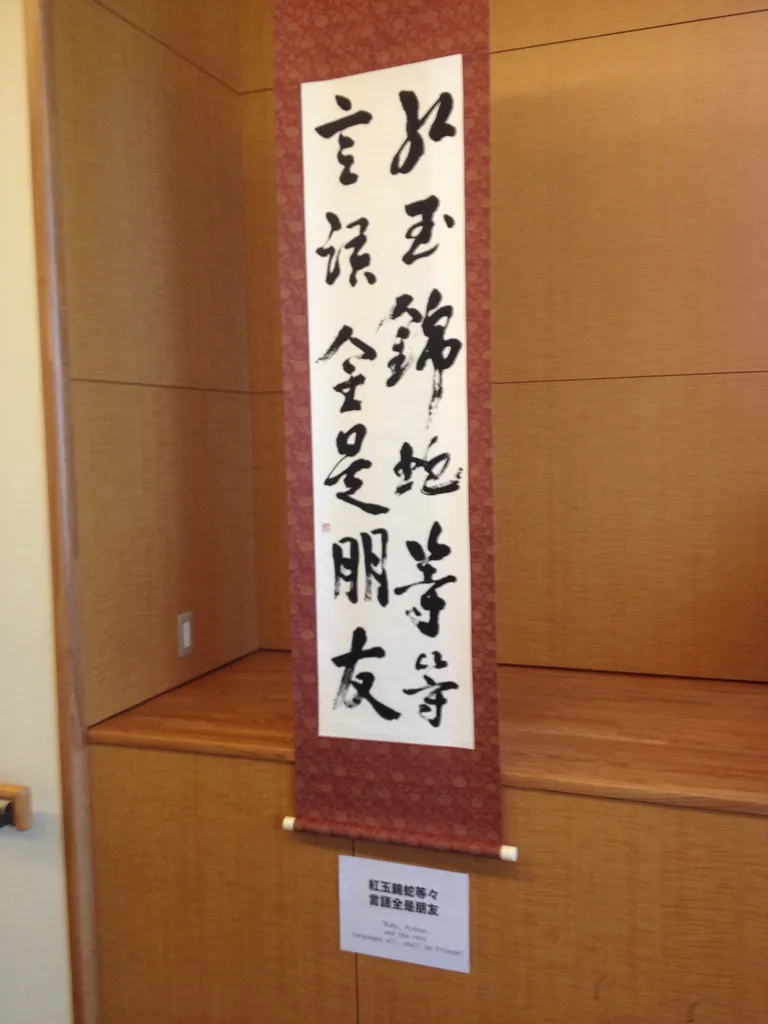 紅玉錦蛇等等
言語全是朋友
紅玉錦蛇等々
言語全是朋友
"Ruby, Python,
and the rest
languages all, shall be friends"